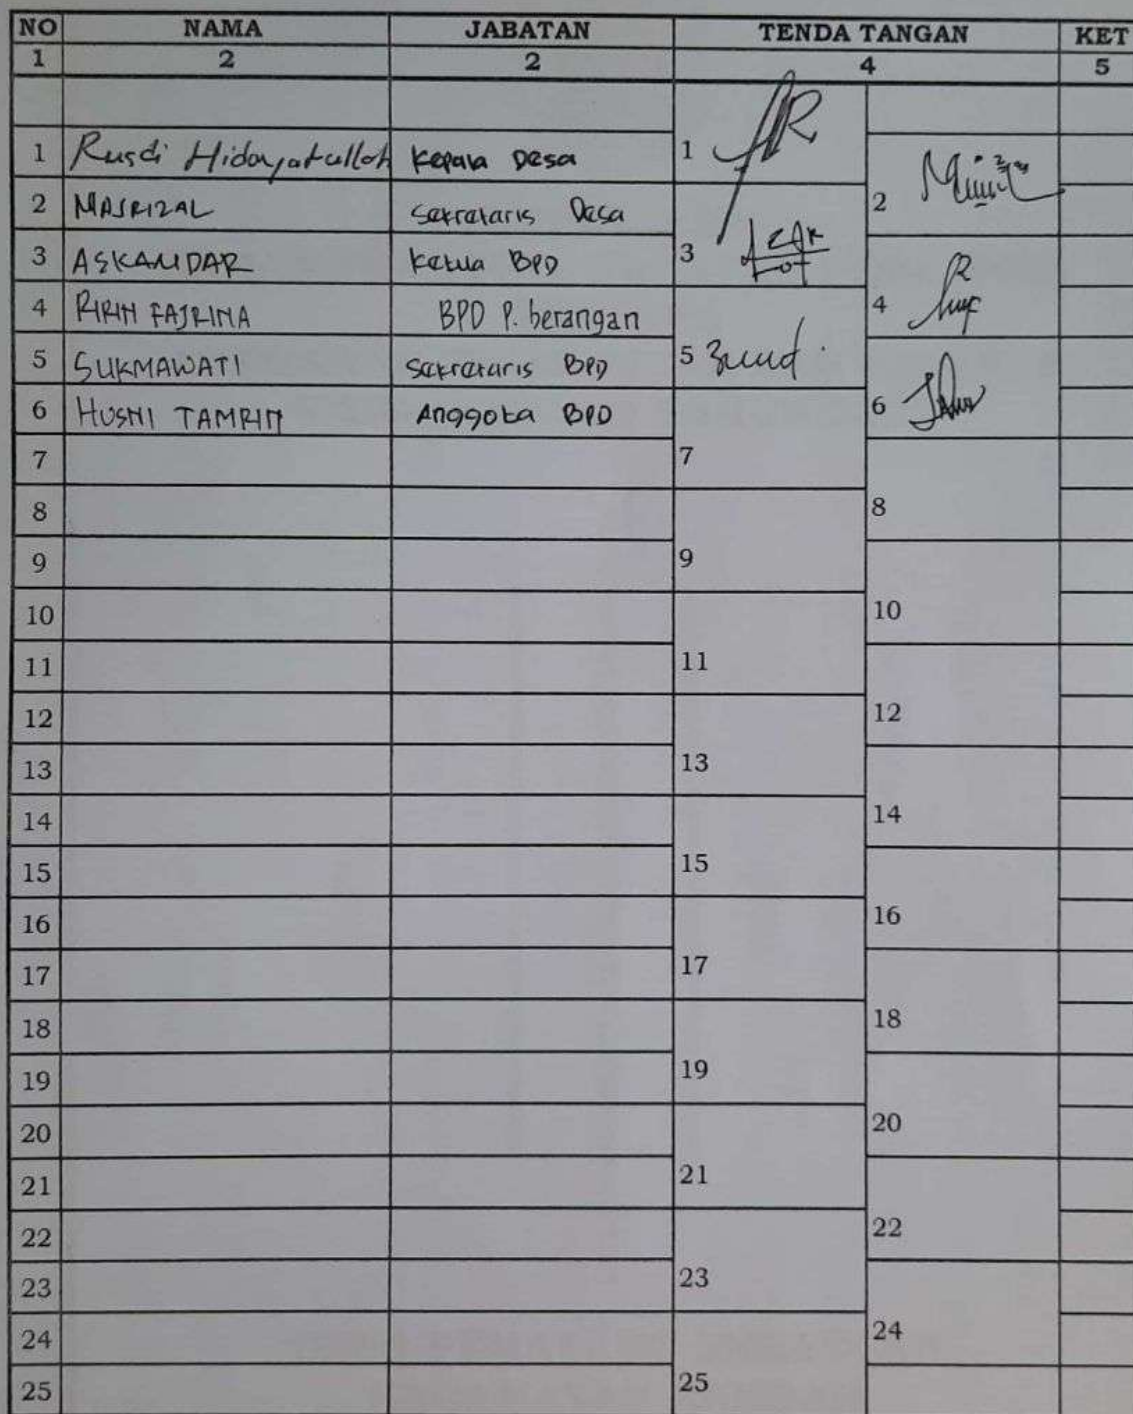 NO NAMA JABATAN TENDA TANGAN KET
1 2 2 4 5
1 Rusdi Hidayatulloh Kepala Desa 1
2 MASRIZAL Sekretaris Desa 2
3 ASKANDAR Ketua BPD 3
4 RIRIN FAJRINA BPD P. berangan 4
5 SUKMAWATI Sekretaris BPD 5
6 HUSNI TAMRIN Anggota BPD 6
7 7
8 8
9 9
10 10
11 11
12 12
13 13
14 14
15 15
16 16
17 17
18 18
19 19
20 20
21 21
22 22
23 23
24 24
25 25